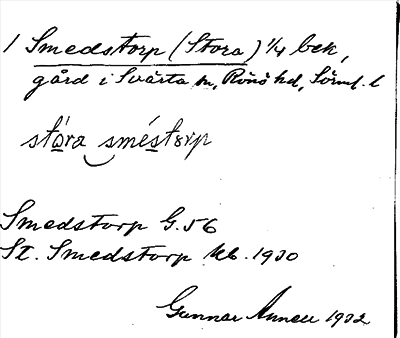 1 Smedstorp (Stora) 1/4 bek,
gård i Svärta sn, Rönö hd, Sörml. l
stóra sméstorp
Smedstorp G. 56
St. Smedstorp Kb. 1930
Gunnar 1932